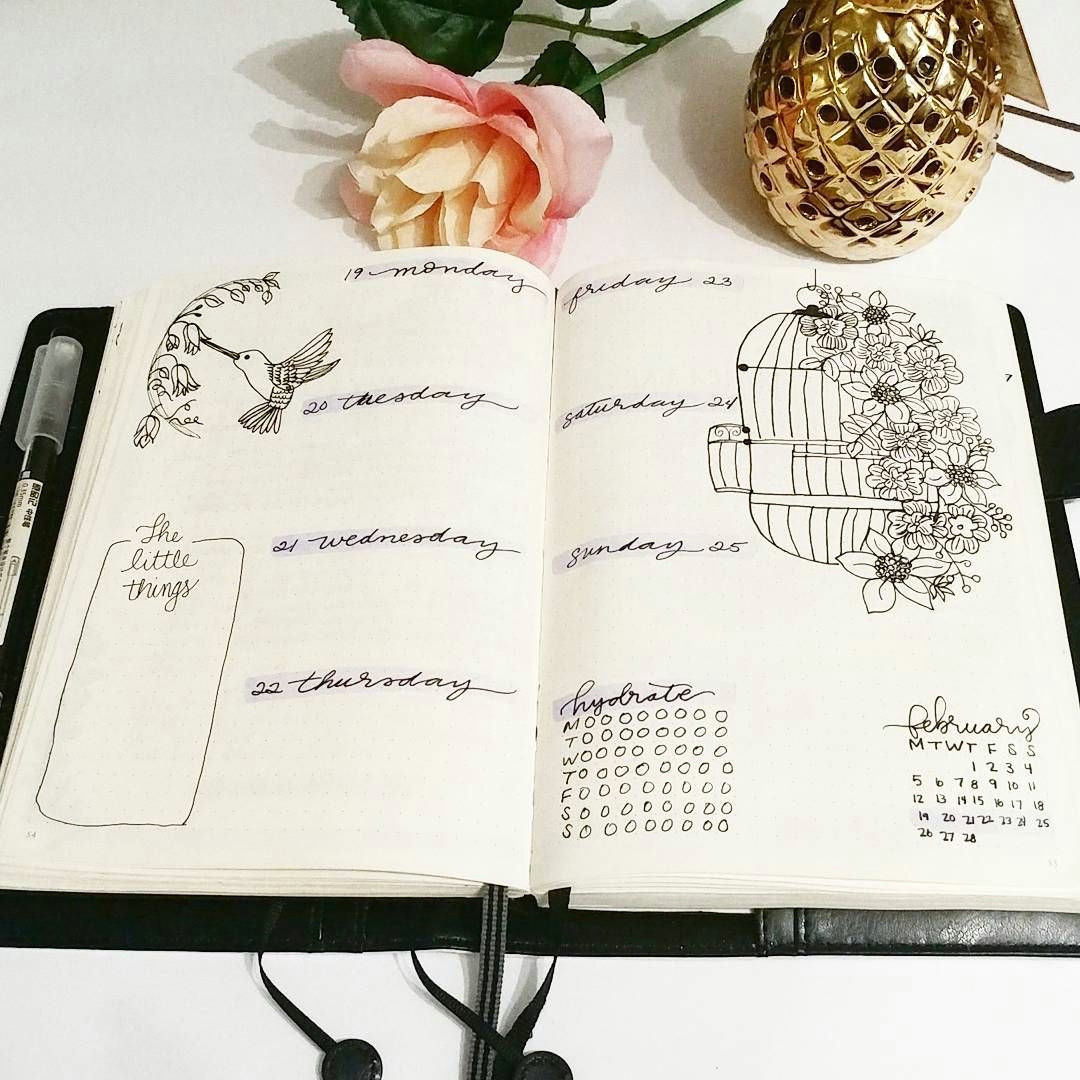 19 monday
20 tuesday
21 wednesday
22 thursday
The
little
things
54
friday 23
saturday 24
sunday 25
hydrate
M
T
W
T
F
S
S
february
M T W T F S S
1 2 3 4
5 6 7 8 9 10 11
12 13 14 15 16 17 18
19 20 21 22 23 24 25
26 27 28
7
0.35mm